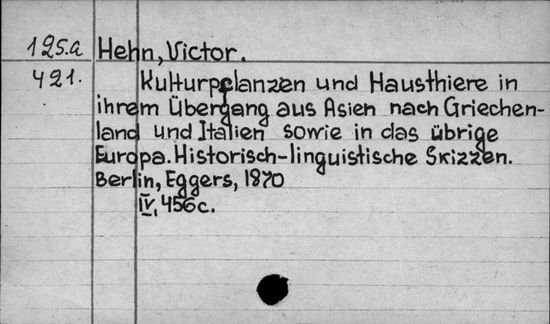 125.a Hehn, Victor.
421. Kulturpflanzen und Hausthiere in
ihrem Übergang aus Asien nach Griechen-
land und Italien sowie in das übrige
Europa. Historisch-linguistische Skizzen.
Berlin, Eggers, 1870
IV, 456c.